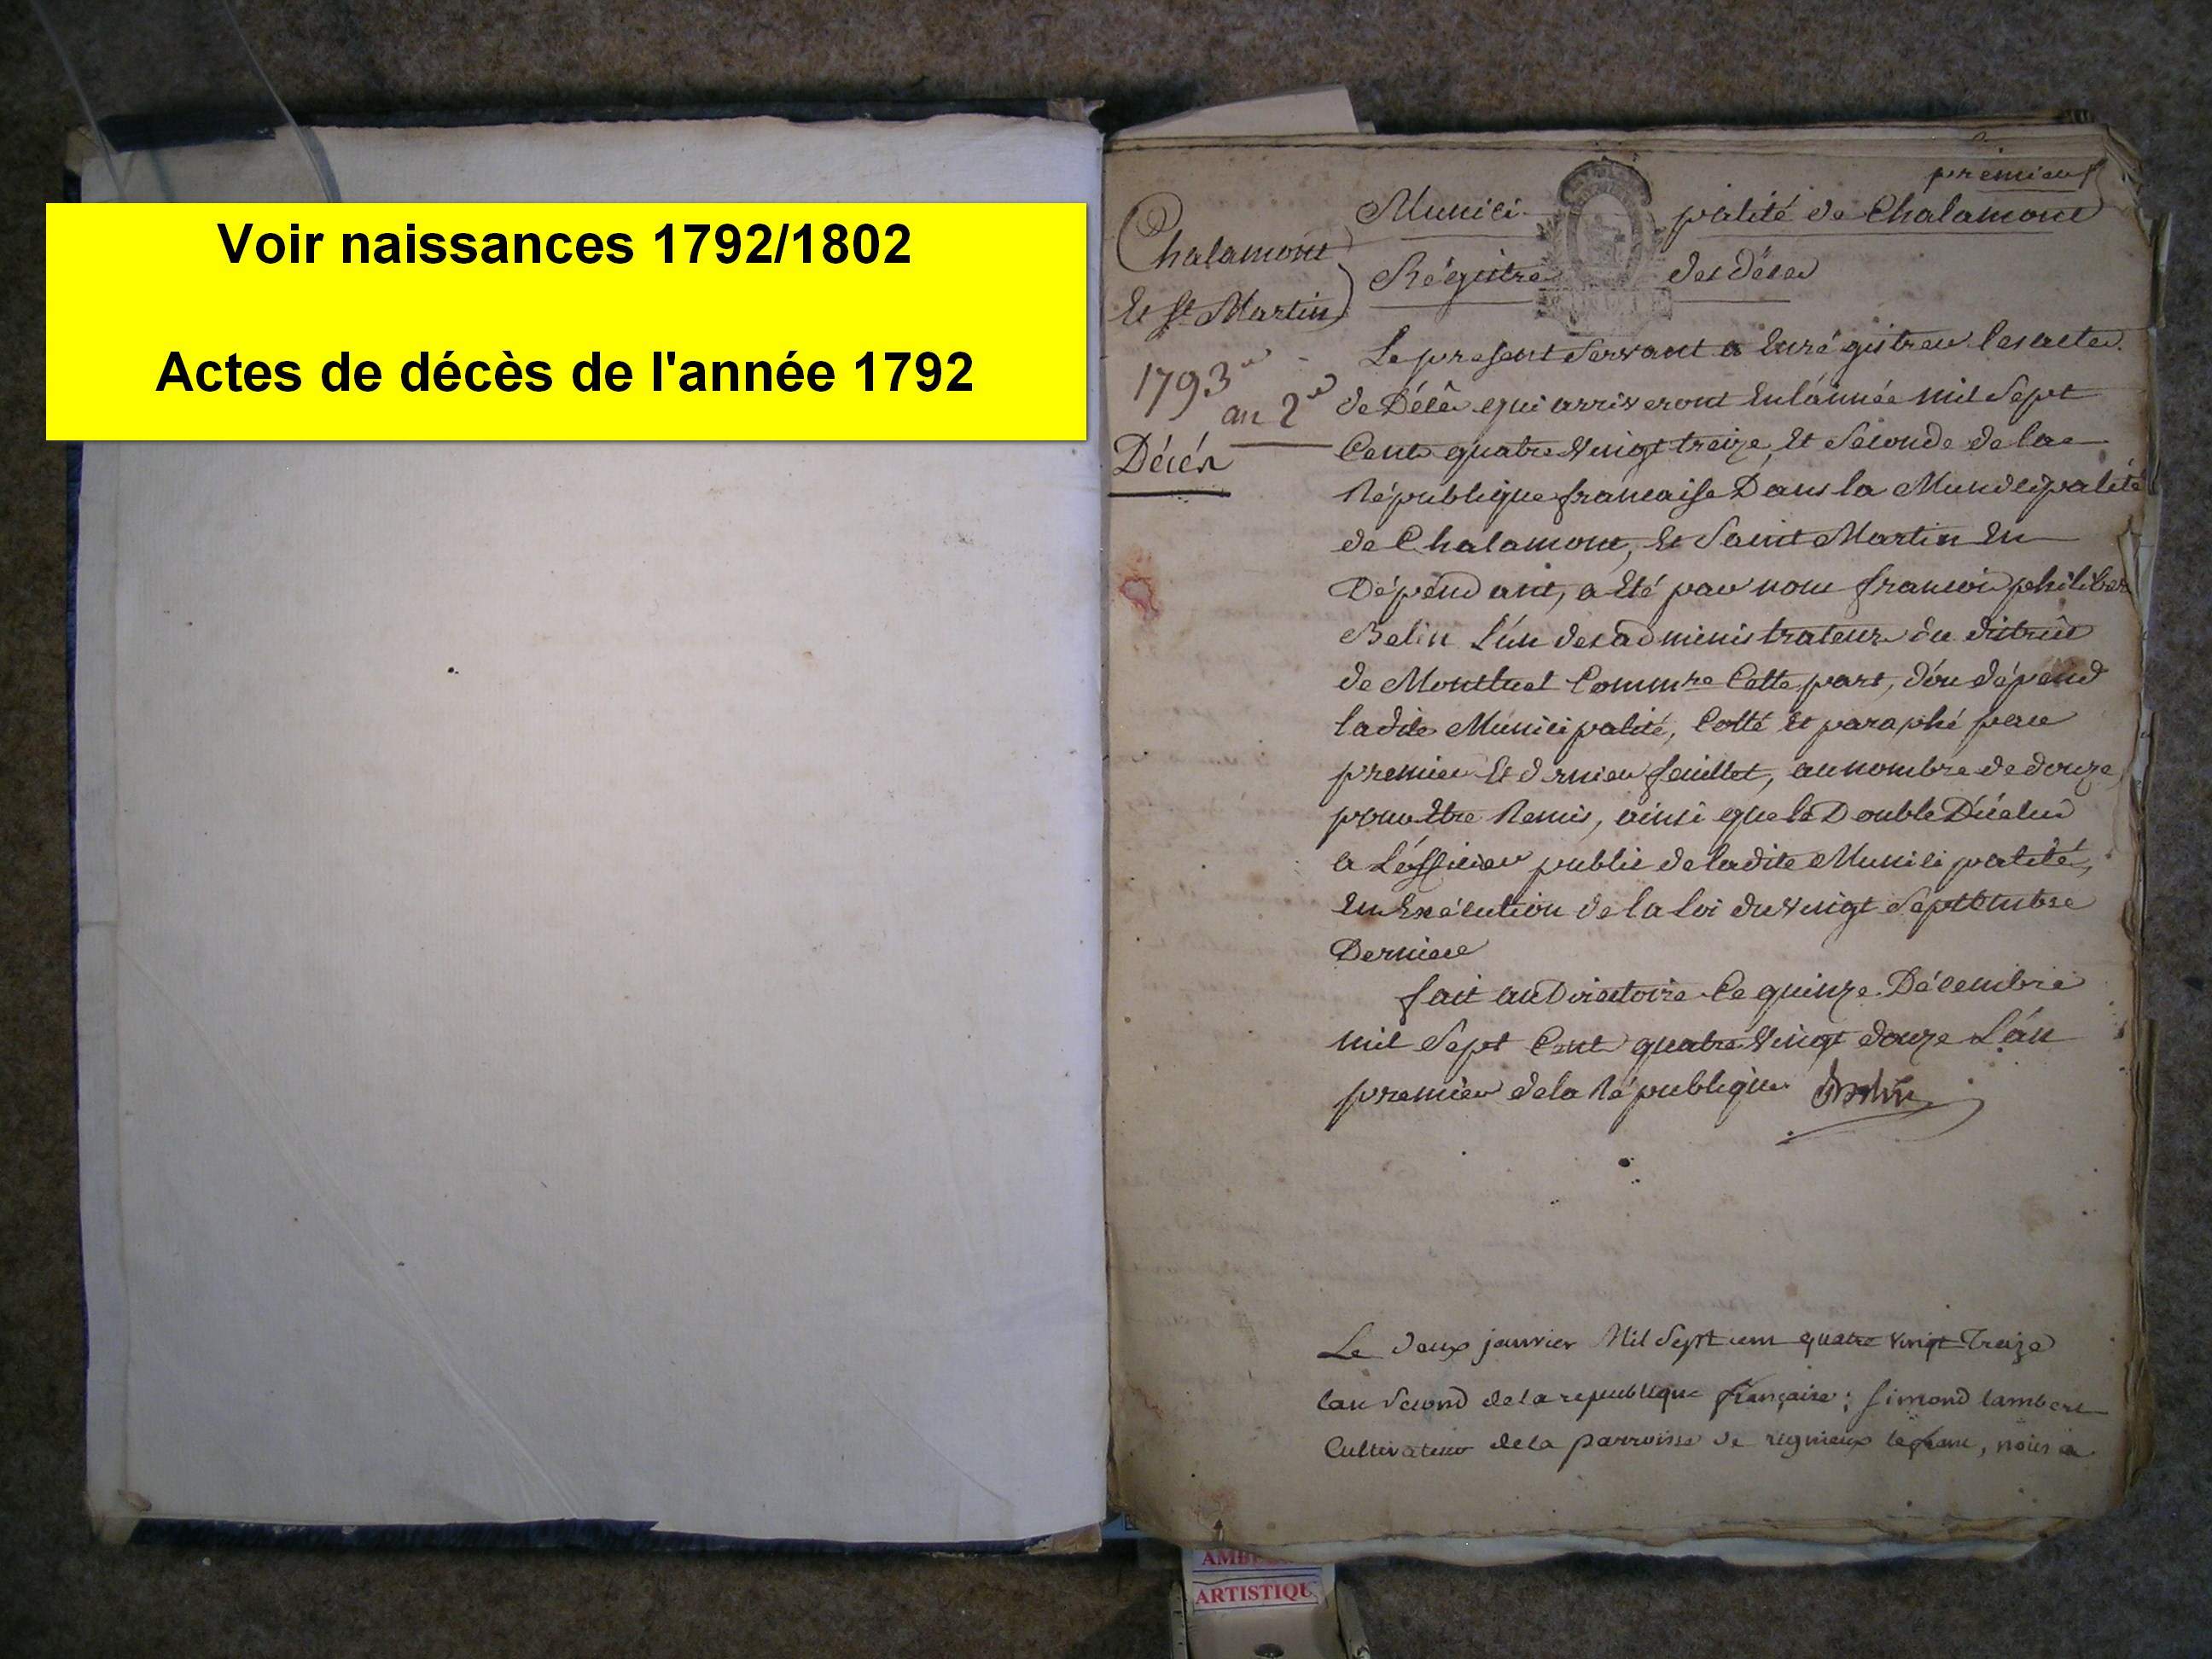 Voir naissances 1792/1802
Actes de décès de l'année 1792
premier
Chalamont
Et St Martin
1793
an 2
Décés
Munici palité de Chalamont
Régistre des Déces
Le present Servant a Enrégistrer les actes
de Décès qui arriveront En l'année mil Sept
Cent quatre Vingt treize, Et Seconde de la
République francaise Dans la Municipalité
de Chalamont, Et Saint Martin En
Dépendant, a Eté par nous francois philiber
Belin L'un des administrateurs du district
de Montluel Commre Cette part, d'ou dépend
ladite Municipalité, Cotté Et paraphé par
premier Et dernier feuillet, au nombre de douze
pour Etre Remis, ainsi que le Double D'icelui
a L'officier public de ladite Municipalité,
En Exécution de la Loi du Vingt Septembre
Dernier
fait au Directoire Ce quinze Décembre
mil Sept Cent quatre Vingt douze L'an
premier de la République Belin
Le deux janvier Mil Sept cent quatre vingt Treize
lan Second de la republique française; Simond lambert
Cultivateur de la parroisse de rignieux le franc, nous a
AMB
ARTISTIQU